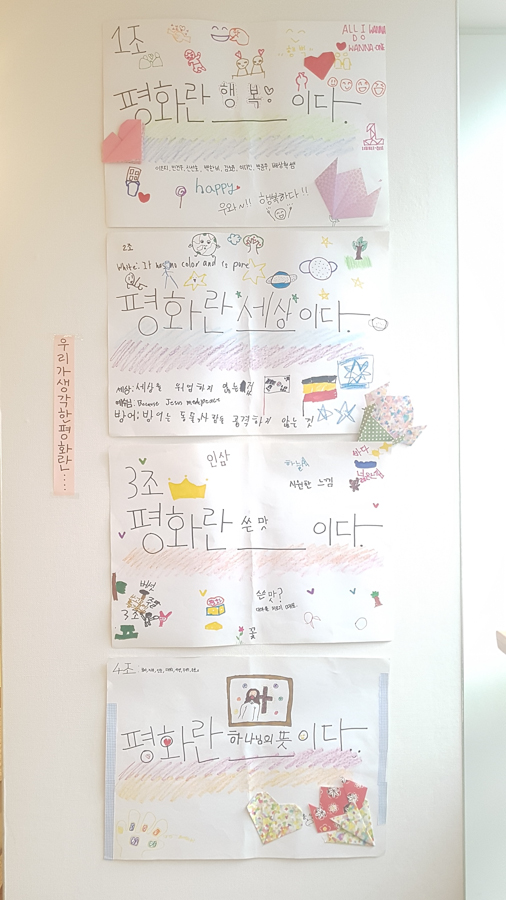 우리가생각한평화란...
1조
ALL I WANNA
DO
WANNA ONE
평화란 행복 이다.
happy
우와~!! 행복하다!!
2조
White: It has no color and is pure
평화란 세상 이다.
세상: 세상을 위험하지 않는 것
Because Jesus made peace
방어: 방어는 동물, 사람을 공격하지 않는 것
인삼
하늘
바다
3조
시원한 느낌
평화란 쓴맛 이다.
버섯
쓴맛?
3조
꽃
4조
평화란 하나님의 뜻 이다..